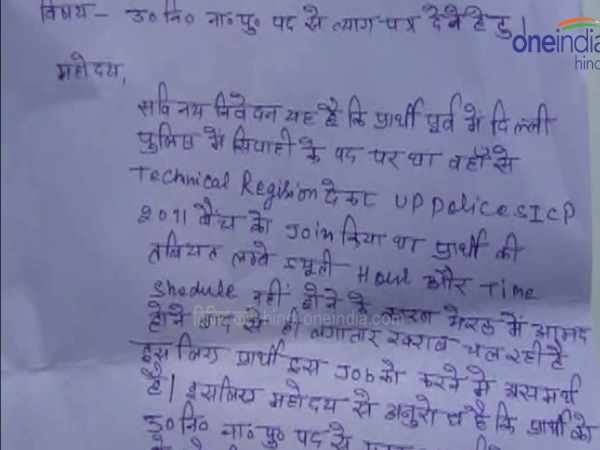 विषय - उ० नि० ना० पु० पद से त्याग-पत्र देने हेतु।
oneindia
hindi
महोदय,
सविनय निवेदन यह है कि प्रार्थी पूर्व में दिल्ली
पुलिस में सिपाही के पद पर था वहाँ से
Technical Regision देकर UP Police SICP
2011 बैच को Join किया था प्रार्थी की
तबियत लम्बे ड्यूटी Hour और Time
Shedule नहीं होने के कारण मेरठ में आमद
hindi.oneindia.com
होने बाद से ही लगातार खराब चल रही है
इसलिए प्रार्थी इस Job को करने में असमर्थ
है। इसलिए महोदय से अनुरोध है कि प्रार्थी को
उ० नि० ना० पु० पद से